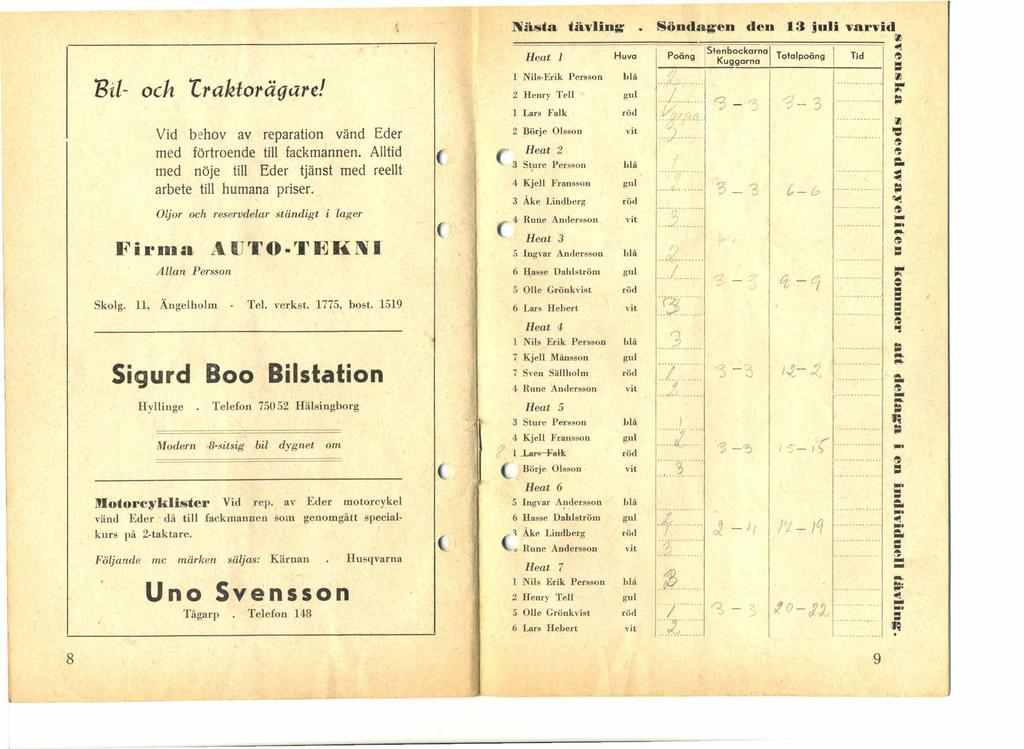 Bil- och Traktorägare!
Vid behov av reparation vänd Eder
med förtroende till fackmannen. Alltid
med nöje till Eder tjänst med reellt
arbete till humana priser.
Oljor och reservdelar ständigt i lager
Firma AUTO-TEKNI
Allan Persson
Skolg. 11, Ängelholm - Tel. verkst. 1775, bost. 1519
Sigurd Boo Bilstation
Hyllinge . Telefon 750 52 Hälsingborg
Modern 8-sitsig bil dygnet om
Motorcyklister Vid rep. av Eder motorcykel
vänd Eder då till fackmannen som genomgått special-
kurs på 2-taktare.
Följande mc märken säljas: Kärnan . Husqvarna
Uno Svensson
Tågarp . Telefon 148
8
Nästa tävling . Söndagen den 13 juli varvid
svenska speedwayeliten kommer att deltaga i en individuell tävling.
Heat 1 Huva Poäng Stenbockarna Kuggarna Totalpoäng Tid
1 Nils-Erik Persson blå 2
2 Henry Tell gul 1 3-3 3-3
1 Lars Falk röd
2 Börje Olsson vit 3
Heat 2
3 Sture Persson blå 1
4 Kjell Fransson gul 2 3-3 6-6
3 Åke Lindberg röd
4 Rune Andersson vit 3
Heat 3
5 Ingvar Andersson blå 2
6 Hasse Dahlström gul 1 3-3 9-9
5 Olle Grönkvist röd
6 Lars Hebert vit 3
Heat 4
1 Nils Erik Persson blå 3
7 Kjell Månsson gul
7 Sven Sällholm röd 1 3-3 12-2
4 Rune Andersson vit 2
Heat 5
3 Sture Persson blå 1
4 Kjell Fransson gul 2 3-3 15-15
1 Lars Falk röd
8 Börje Olsson vit 3
Heat 6
5 Ingvar Andersson blå
6 Hasse Dahlström gul 2-4 17-19
3 Åke Lindberg röd 1
Rune Andersson vit 3
Heat 7
1 Nils Erik Persson blå 3
2 Henry Tell gul
5 Olle Grönkvist röd 1 3-3 20-22
6 Lars Hebert vit 2
9